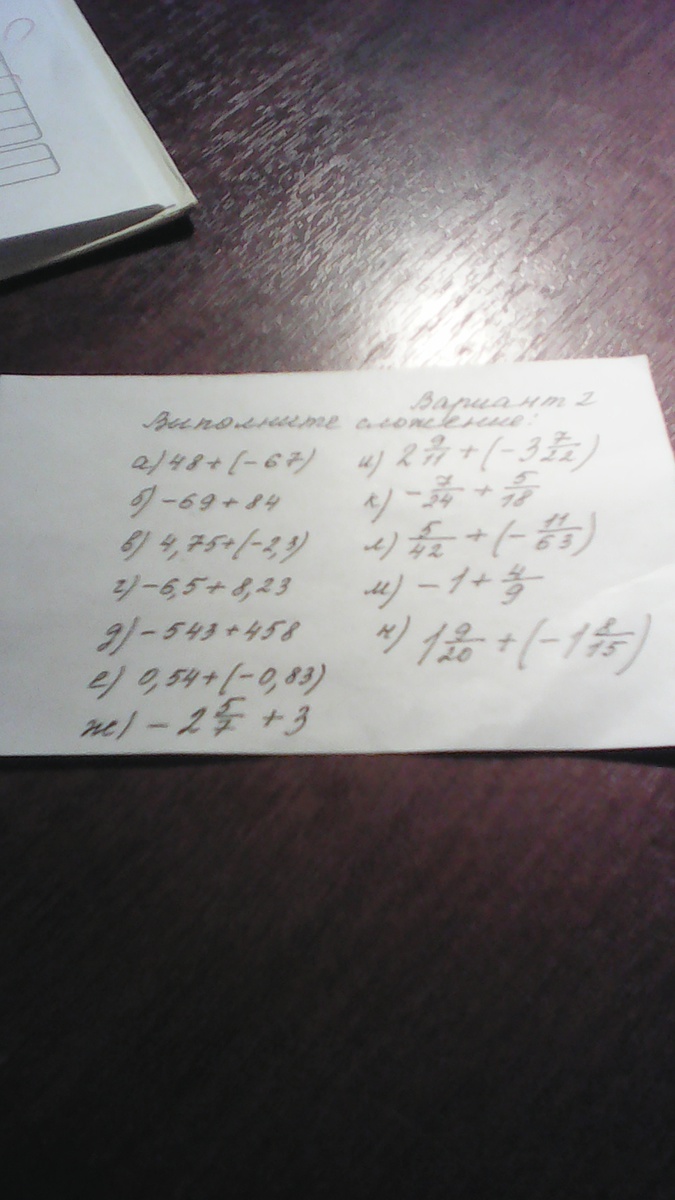 Вариант 2
Выполните сложение:
а) 48 + (-67)
б) -69 + 84
в) 4,75 + (-2,3)
г) -6,5 + 8,23
д) -543 + 458
е) 0,54 + (-0,83)
ж) -2 5/7 + 3
и) 2 9/11 + (-3 7/22)
к) -7/24 + 5/18
л) 5/42 + (-11/63)
м) -1 + 4/9
н) 1 9/20 + (-1 8/15)